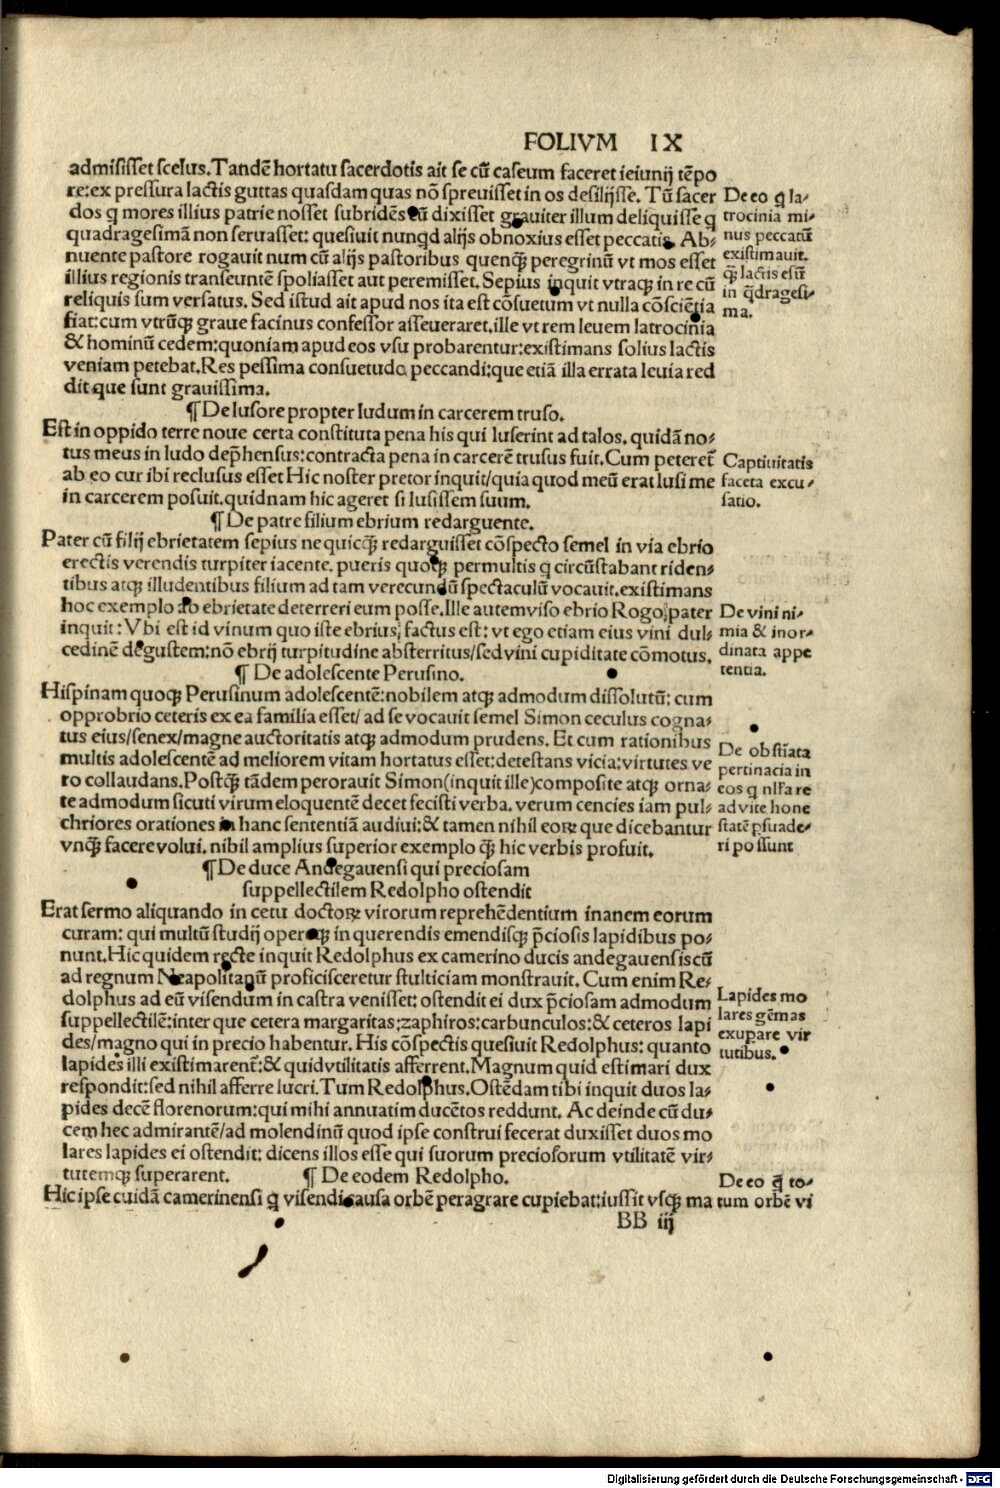 FOLIVM IX
admisisset scelus. Tandē hortatu sacerdotis ait se cū caseum faceret ieiunij tēpo
re: ex pressura lactis guttas quasdam quas nō spreuisset in os desilijsse. Tū sacer
dos q mores illius patrie nosset subridēs cū dixisset grauiter illum deliquisse q
quadragesimā non seruasset: quesiuit nunqd alijs obnoxius esset peccatis. Ab⸗
nuente pastore rogauit num cū alijs pastoribus quenqȝ peregrinū vt mos esset
illius regionis transeuntē spoliasset aut peremisset. Sepius inquit vtraqȝ in re cū
reliquis sum versatus. Sed istud ait apud nos ita est cōsuetum vt nulla cōsciētia
fiat: cum vtrūqȝ graue facinus confessor asseueraret. ille vt rem leuem latrocinia
& hominū cedem: quoniam apud eos vsu probarentur: existimans solius lactis
veniam petebat. Res pessima consuetudo peccandi: que etiā illa errata leuia red
dit que sunt grauissima.
¶ De lusore propter ludum in carcerem truso.
Est in oppido terre noue certa constituta pena his qui luserint ad talos. quidā no⸗
tus meus in ludo dep̄hensus: contracta pena in carcerē trusus fuit. Cum peteret̄
ab eo cur ibi reclusus esset Hic noster pretor inquit/ quia quod meū erat lusi me
in carcerem posuit. quidnam hic ageret si lusissem suum.
¶ De patre filium ebrium redarguente.
Pater cū filij ebrietatem sepius nequicqȝ redarguisset cōspecto semel in via ebrio
erectis verendis turpiter iacente. pueris quoqȝ permultis q circūstabant riden⸗
tibus atqȝ illudentibus filium ad tam verecundū spectaculū vocauit. existimans
hoc exemplo ab ebrietate deterreri eum posse. Ille autem viso ebrio Rogo pater
inquit: Vbi est id vinum quo iste ebrius factus est: vt ego etiam eius vini dul⸗
cedinē degustem: nō ebrij turpitudine absterritus/ sed vini cupiditate cōmotus.
¶ De adolescente Perusino.
Hispinam quoqȝ Perusinum adolescentē: nobilem atqȝ admodum dissolutū: cum
opprobrio ceteris ex ea familia esset/ ad se vocauit semel Simon ceculus cogna⸗
tus eius/ senex/ magne auctoritatis atqȝ admodum prudens. Et cum rationibus
multis adolescentē ad meliorem vitam hortatus esset: detestans vicia: virtutes ve
ro collaudans. Postqȝ tādem perorauit Simon (inquit ille) composite atqȝ orna⸗
te admodum sicuti virum eloquentē decet fecisti verba. verum cencies iam pul⸗
chriores orationes in hanc sententiā audiui: & tamen nihil eorꝝ que dicebantur
vnqȝ facere volui. nihil amplius superior exemplo qȝ hic verbis profuit.
¶ De duce Andegauensi qui preciosam
suppellectilem Redolpho ostendit
Erat sermo aliquando in cetu doctorꝝ virorum reprehēdentium inanem eorum
curam: qui multū studij opereqȝ in querendis emendisqȝ p̄ciosis lapidibus po⸗
nunt. Hic quidem recte inquit Redolphus ex camerino ducis andegauensis cū
ad regnum Neapolitanū proficisceretur stulticiam monstrauit. Cum enim Re⸗
dolphus ad eū visendum in castra venisset: ostendit ei dux p̄ciosam admodum
suppellectilē: inter que cetera margaritas: zaphiros: carbunculos: & ceteros lapi
des/ magno qui in precio habentur. His cōspectis quesiuit Redolphus: quanto
lapides illi existimarent̄: & quid vtilitatis afferrent. Magnum quid estimari dux
respondit: sed nihil afferre lucri. Tum Redolphus. Ostēdam tibi inquit duos la⸗
pides decē florenorum: qui mihi annuatim ducētos reddunt. Ac deinde cū du⸗
cem hec admirantē/ ad molendinū quod ipse construi fecerat duxisset duos mo
lares lapides ei ostendit: dicens illos esse qui suorum preciosorum vtilitatē vir⸗
tutemqȝ superarent. ¶ De eodem Redolpho.
Hic ipse cuidā camerinensi q visendi causa orbē peragrare cupiebat: iussit vsqȝ ma
BB iij
De eo q la⸗
trocinia mi⸗
nus peccatū
existimauit.
qȝ lactis esū
in q̄dragesi⸗
ma.
Captiuitatis
faceta excu⸗
satio.
De vini ni⸗
mia & inor⸗
dinata appe
tentia.
De obstīata
pertinacia in
eos q nlla re
ad vite hone
statē ꝑsuade⸗
ri possunt
Lapides mo
lares gēmas
exupare vir
tutibus.
De eo q to⸗
tum orbē vi
Digitalisierung gefördert durch die Deutsche Forschungsgemeinschaft - DFG